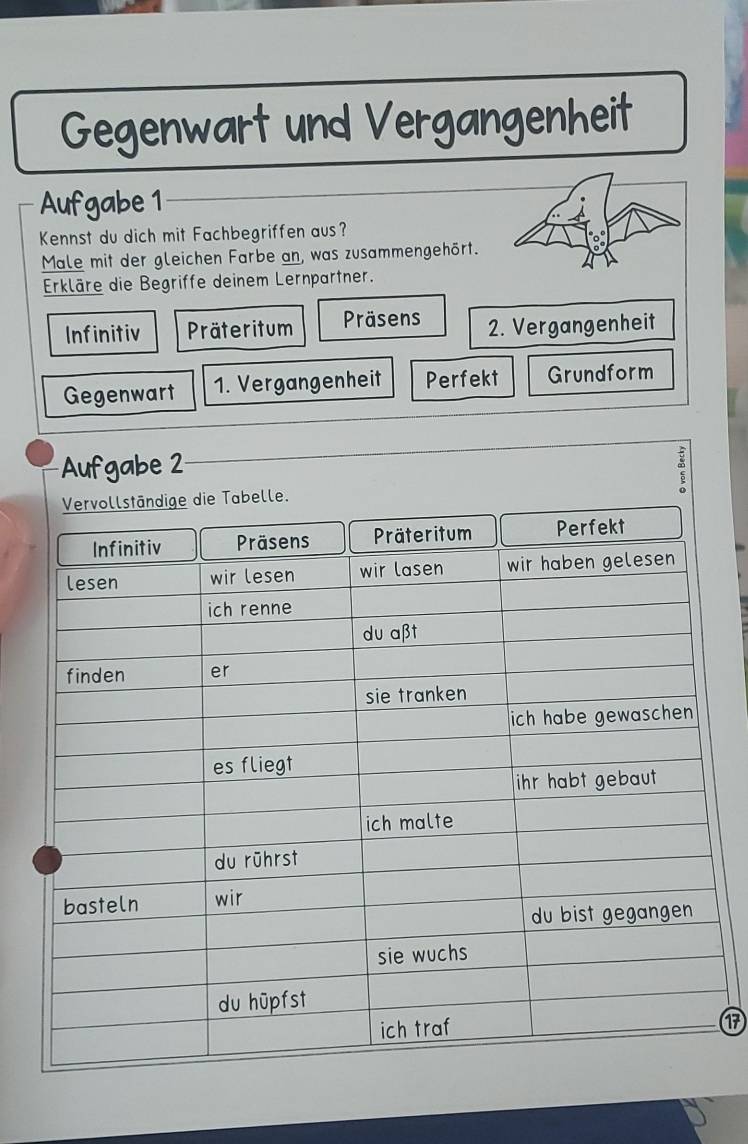 Gegenwart und Vergangenheit
Aufgabe 1
Kennst du dich mit Fachbegriffen aus?
Male mit der gleichen Farbe an, was zusammengehört.
Erkläre die Begriffe deinem Lernpartner.
Infinitiv Präteritum Präsens 2. Vergangenheit
Gegenwart 1. Vergangenheit Perfekt Grundform
Aufgabe 2
© von Becky
Vervollständige die Tabelle.
Infinitiv Präsens Präteritum Perfekt
lesen wir lesen wir lasen wir haben gelesen
ich renne
du aßt
finden er
sie tranken
ich habe gewaschen
es fliegt
ihr habt gebaut
ich malte
du rührst
basteln wir
du bist gegangen
sie wuchs
du hüpfst
ich traf
17